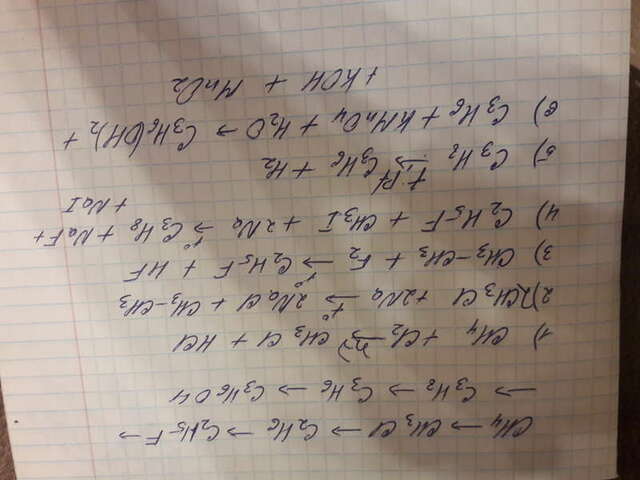 CH4 → CH3Cl → C2H6 → C2H5F →
→ C3H8 → C3H6 → C3H6OH
1) CH4 + Cl2 →(hν) CH3Cl + HCl
2) 2CH3Cl + 2Na →(t°) 2NaCl + CH3-CH3
3) CH3-CH3 + F2 →(t°) C2H5F + HF
4) C2H5F + CH3I + 2Na →(t°) C3H8 + NaF +
+ NaI
5) C3H8 →(t, Pt) C3H6 + H2
6) C3H6 + KMnO4 + H2O → C3H6(OH)2 +
+ KOH + MnO2